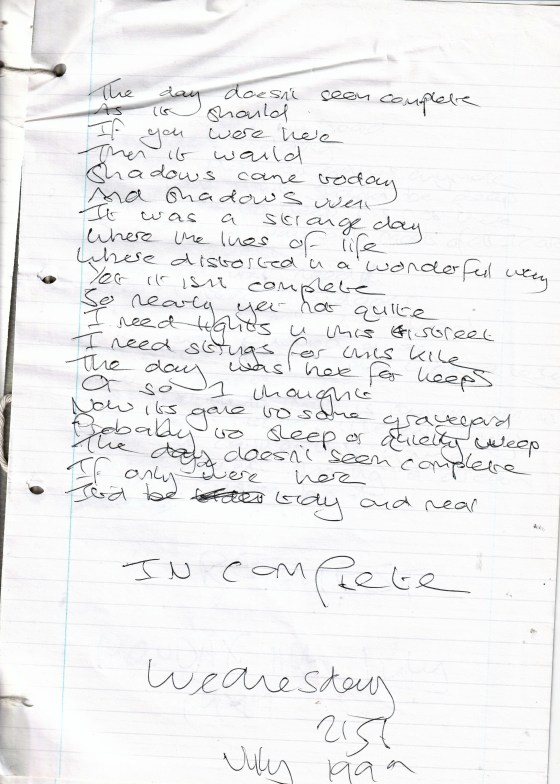 The day doesn't seem complete
As it should
If you were here
Then it would
Shadows came today
And shadows went
It was a strange day
Where the lines of life
Where distorted in a wonderful way
Yet it isn't complete
So nearly yet not quite
I need lights in this street
I need strings for this kite
The day was here for keeps
Or so I thought
Now its gone to some graveyard
Probably to sleep or quietly weep
The day doesn't seem complete
If only you were here
It'd be tidy and near
IN COMPlete
Wednesday
21st
July 1999